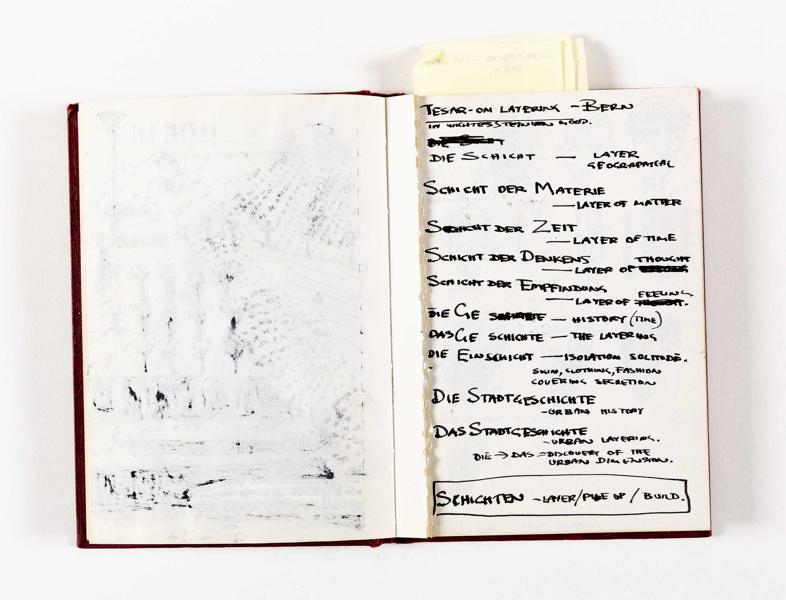 TESAR-ON LAYERING - BERN
IN WITTGENSTEINIAN MOOD.
DIE SCHICHT — LAYER
GEOGRAPHICAL
SCHICHT DER MATERIE
— LAYER OF MATTER
SCHICHT DER ZEIT
— LAYER OF TIME
SCHICHT DER DENKENS
— LAYER OF THOUGHT
SCHICHT DER EMPFINDUNG
— LAYER OF FEELING
DIE GE — HISTORY (TIME)
DAS GE SCHICHTE — THE LAYERING
DIE EINSCHICHT — ISOLATION SOLITUDE.
SKIN, CLOTHING, FASHION
COVERING SECRETION
DIE STADTGESCHICHTE
- URBAN HISTORY
DAS STADTGESCHICHTE
- URBAN LAYERING.
DIE → DAS = DISCOVERY OF THE
URBAN DIMENSION.
SCHICHTEN - LAYER/PILE UP / BUILD.